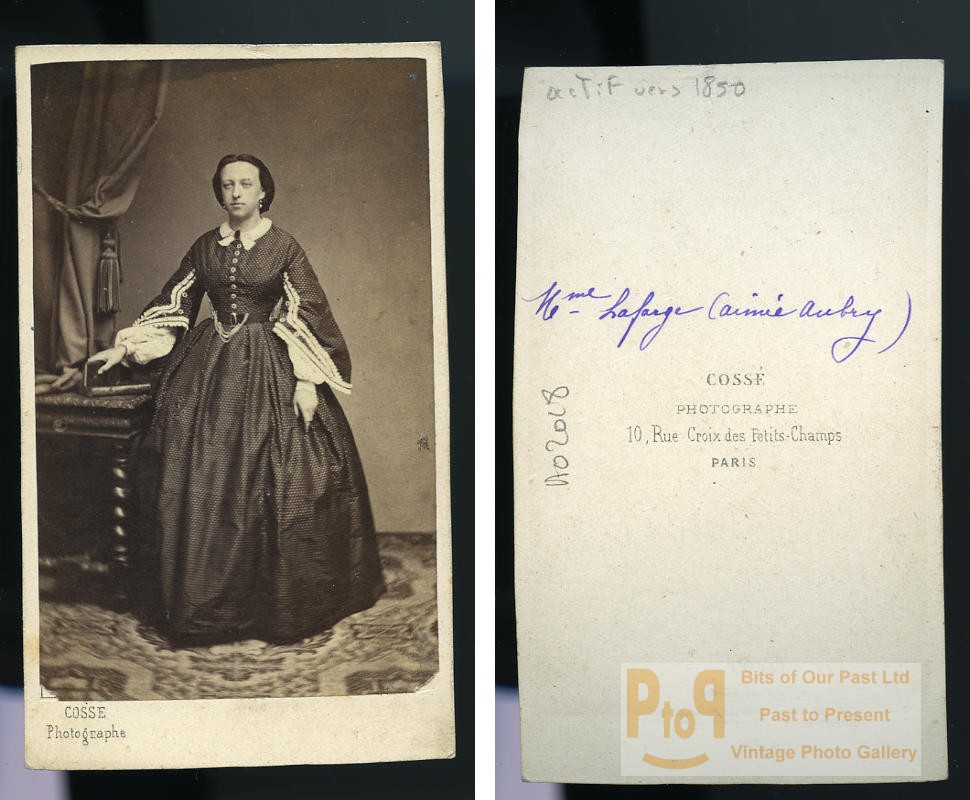 COSSE
Photographe
actif vers 1850
Mme Lafarge (aimée Aubry)
COSSÉ
PHOTOGRAPHE
10, Rue Croix des Petits-Champs
PARIS
A02018
PtoP
Bits of Our Past Ltd
Past to Present
Vintage Photo Gallery